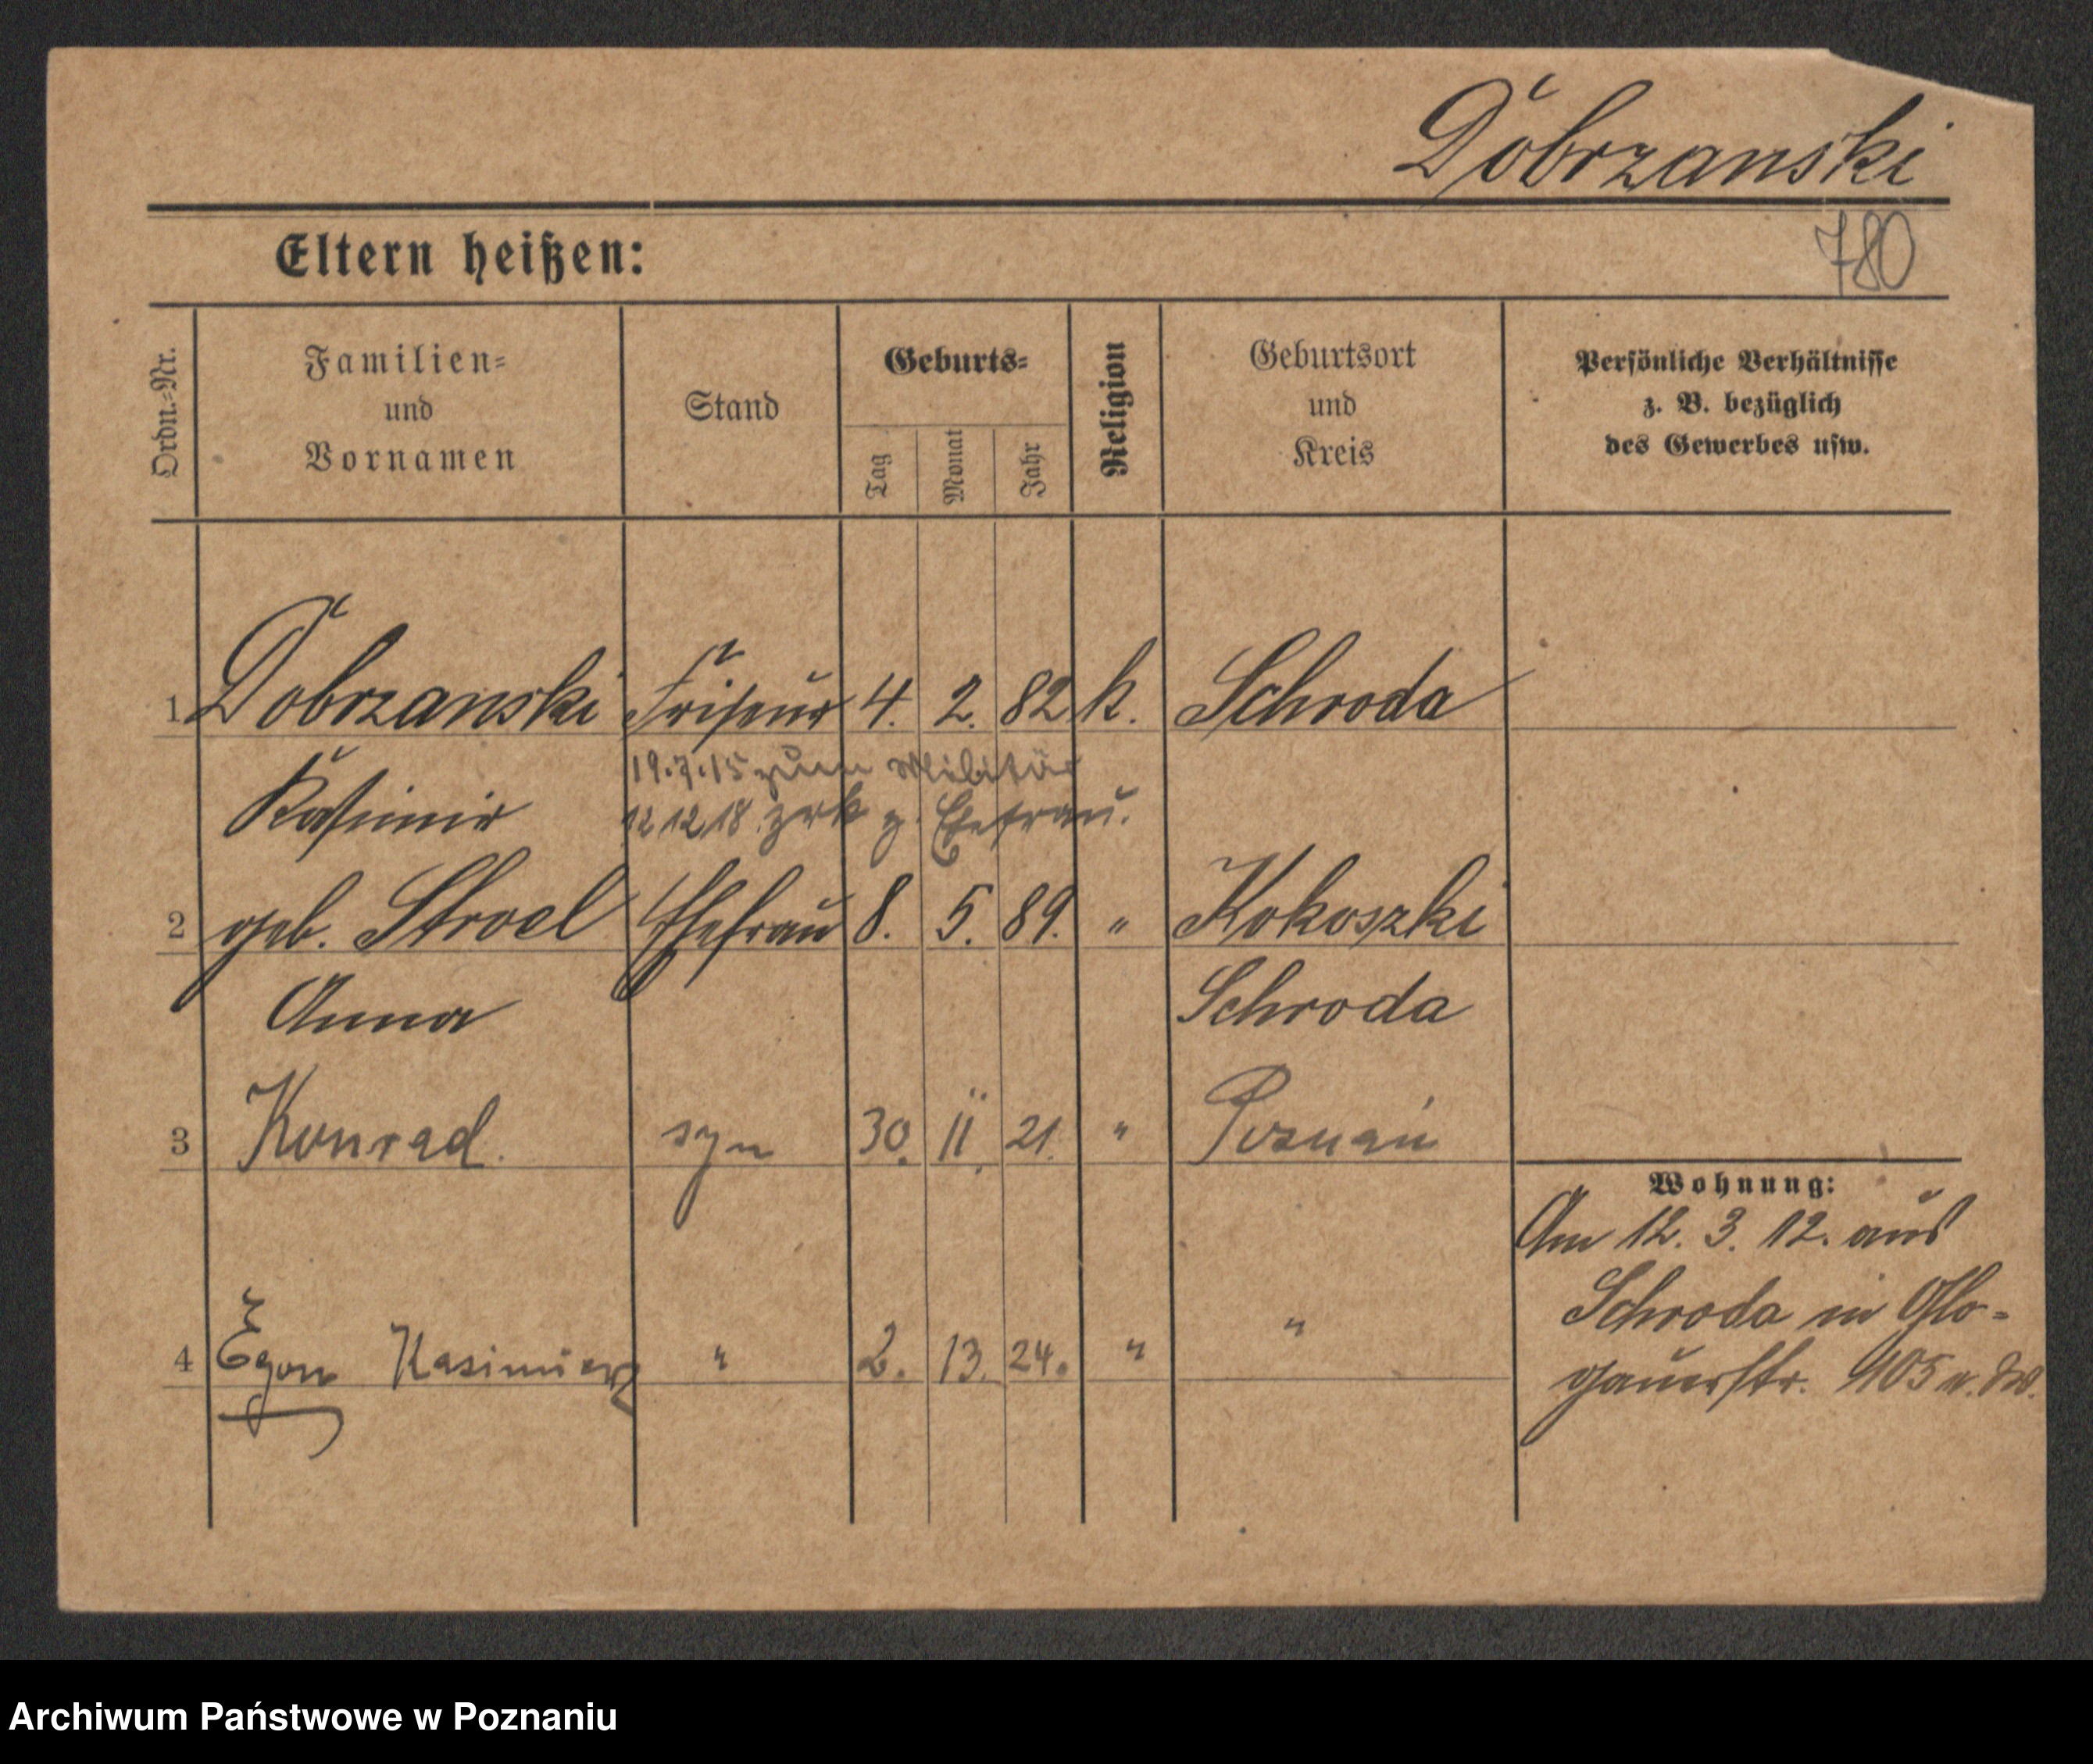 Dobrzanski
Eltern heißen:
780
Ordn.-Nr.
Familien-
und
Vornamen
Stand
Geburts-
Tag
Monat
Jahr
Religion
Geburtsort
und
Kreis
Persönliche Verhältnisse
z. B. bezüglich
des Gewerbes usw.
1 Dobrzanski Friseur 4. 2. 82 k. Schroda
19.7.15 zum Militär
Kasimir 12 12 18 zrk z. Ehefrau.
2 geb. Stroel Ehefrau 8. 5. 89. " Kokoszki
Anna Schroda
3 Konrad. syn 30. 11. 21. " Poznań
Wohnung:
Am 12. 3. 12. aus
Schroda in Glo-
4 Egon Kasimierz " 2. 13. 24. " "
gauerstr. 105
Archiwum Państwowe w Poznaniu